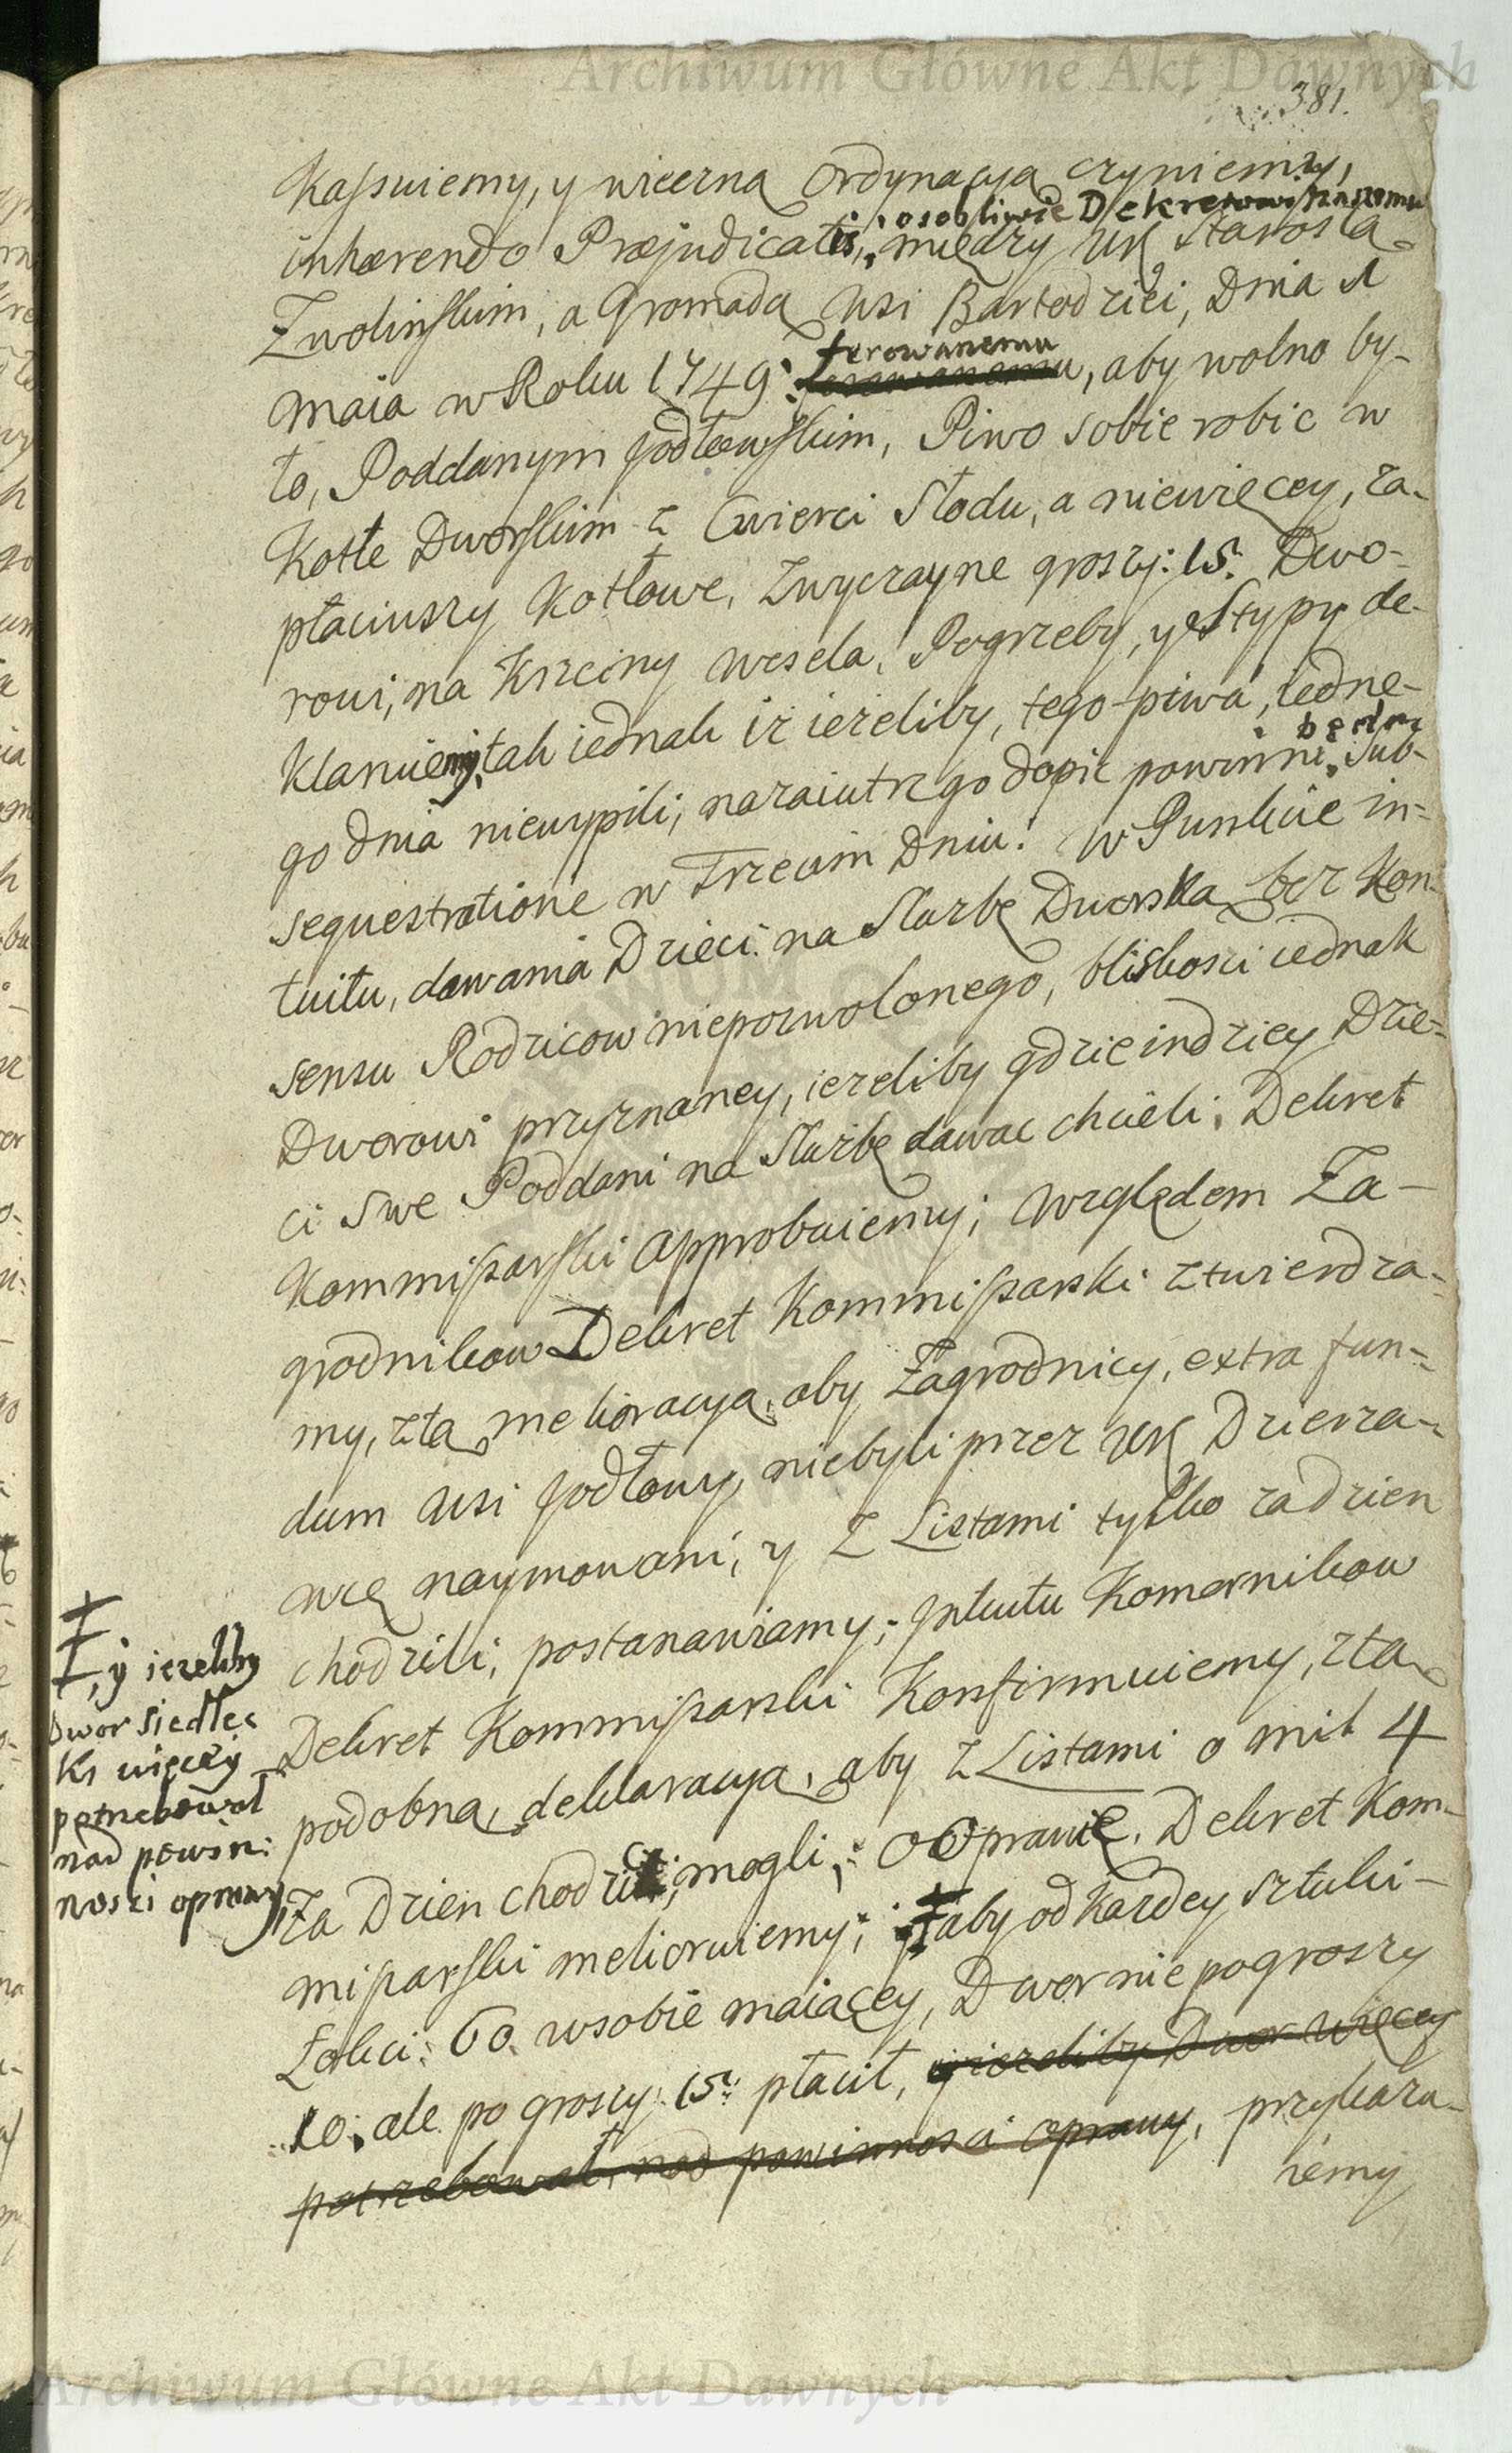 Archiwum Główne Akt Dawnych
381.
Kassuiemy, y wieczna Ordynacya czyniemy,
osobliwie Dekretowi naszemu
inhærendo Præjudicatis, między Ur. Starosta
Zwolinskim, a Gromada Wsi Bartodziei, Dnia 1
maia w Roku 1749: ferowanemu
ferowanemu, aby wolno by-
ło, Poddanym Jodłowskim, Piwo sobie robic w
Kotle Dworskim z Cwierci Słodu, a niewięcey, za-
płaciwszy Kotłowe, Zwyczayne groszy: 15. Dwo-
rowi, na Krzciny Wesela, Pogrzeby, y Stypy de-
klaruiemy, tak iednak iz iezeliby, tego piwa, iedne-
go dnia niewypili, nazaiutrz go dopic powinni będą, sub-
sequestratione w Trzecim Dniu. W Punkcie in-
tuitu, dawania Dzieci na Służbę Dworska bez Kon-
sensu Rodzicow niepozwolonego, bliskosci iednak
Dworowi przyznaney, iezeliby gdzieindziey Dzie-
ci Swe Poddani na Służbę dawac chcieli, Dekret
Kommissarski Approbuiemy; Względem Za-
grodnikow Dekret Kommissarski ztwierdza-
my, zta melioracya, aby Zagrodnicy, extra fun-
dum Wsi Jodłowy, niebyli przez Ur. Dzierza-
wcę naymowani, y Z Listami tylko za dzien
chodzili, postanawiamy; Intuitu Komornikow
Dekret Kommissarski Konfirmuiemy, zta
podobna, deklaracya, aby z Listami o mil 4
Za Dzien chodzic mogli; O Oprawie, Dekret Kom-
missarski melioruiemy; aby od kazdey sztuki
Łokci: 60. wsobie maiącey, Dwor nie pogroszy
10, ale po groszy: 15: płacił, y iezeliby Dwor więcey
potrzebował, nad powinnosci oprawy, przykazu-
iemy
, y iezeliby
Dwor Siedlec
ki więcey
potrzebował
nad powin:
nosci oprawy,
Archiwum Główne Akt Dawnych